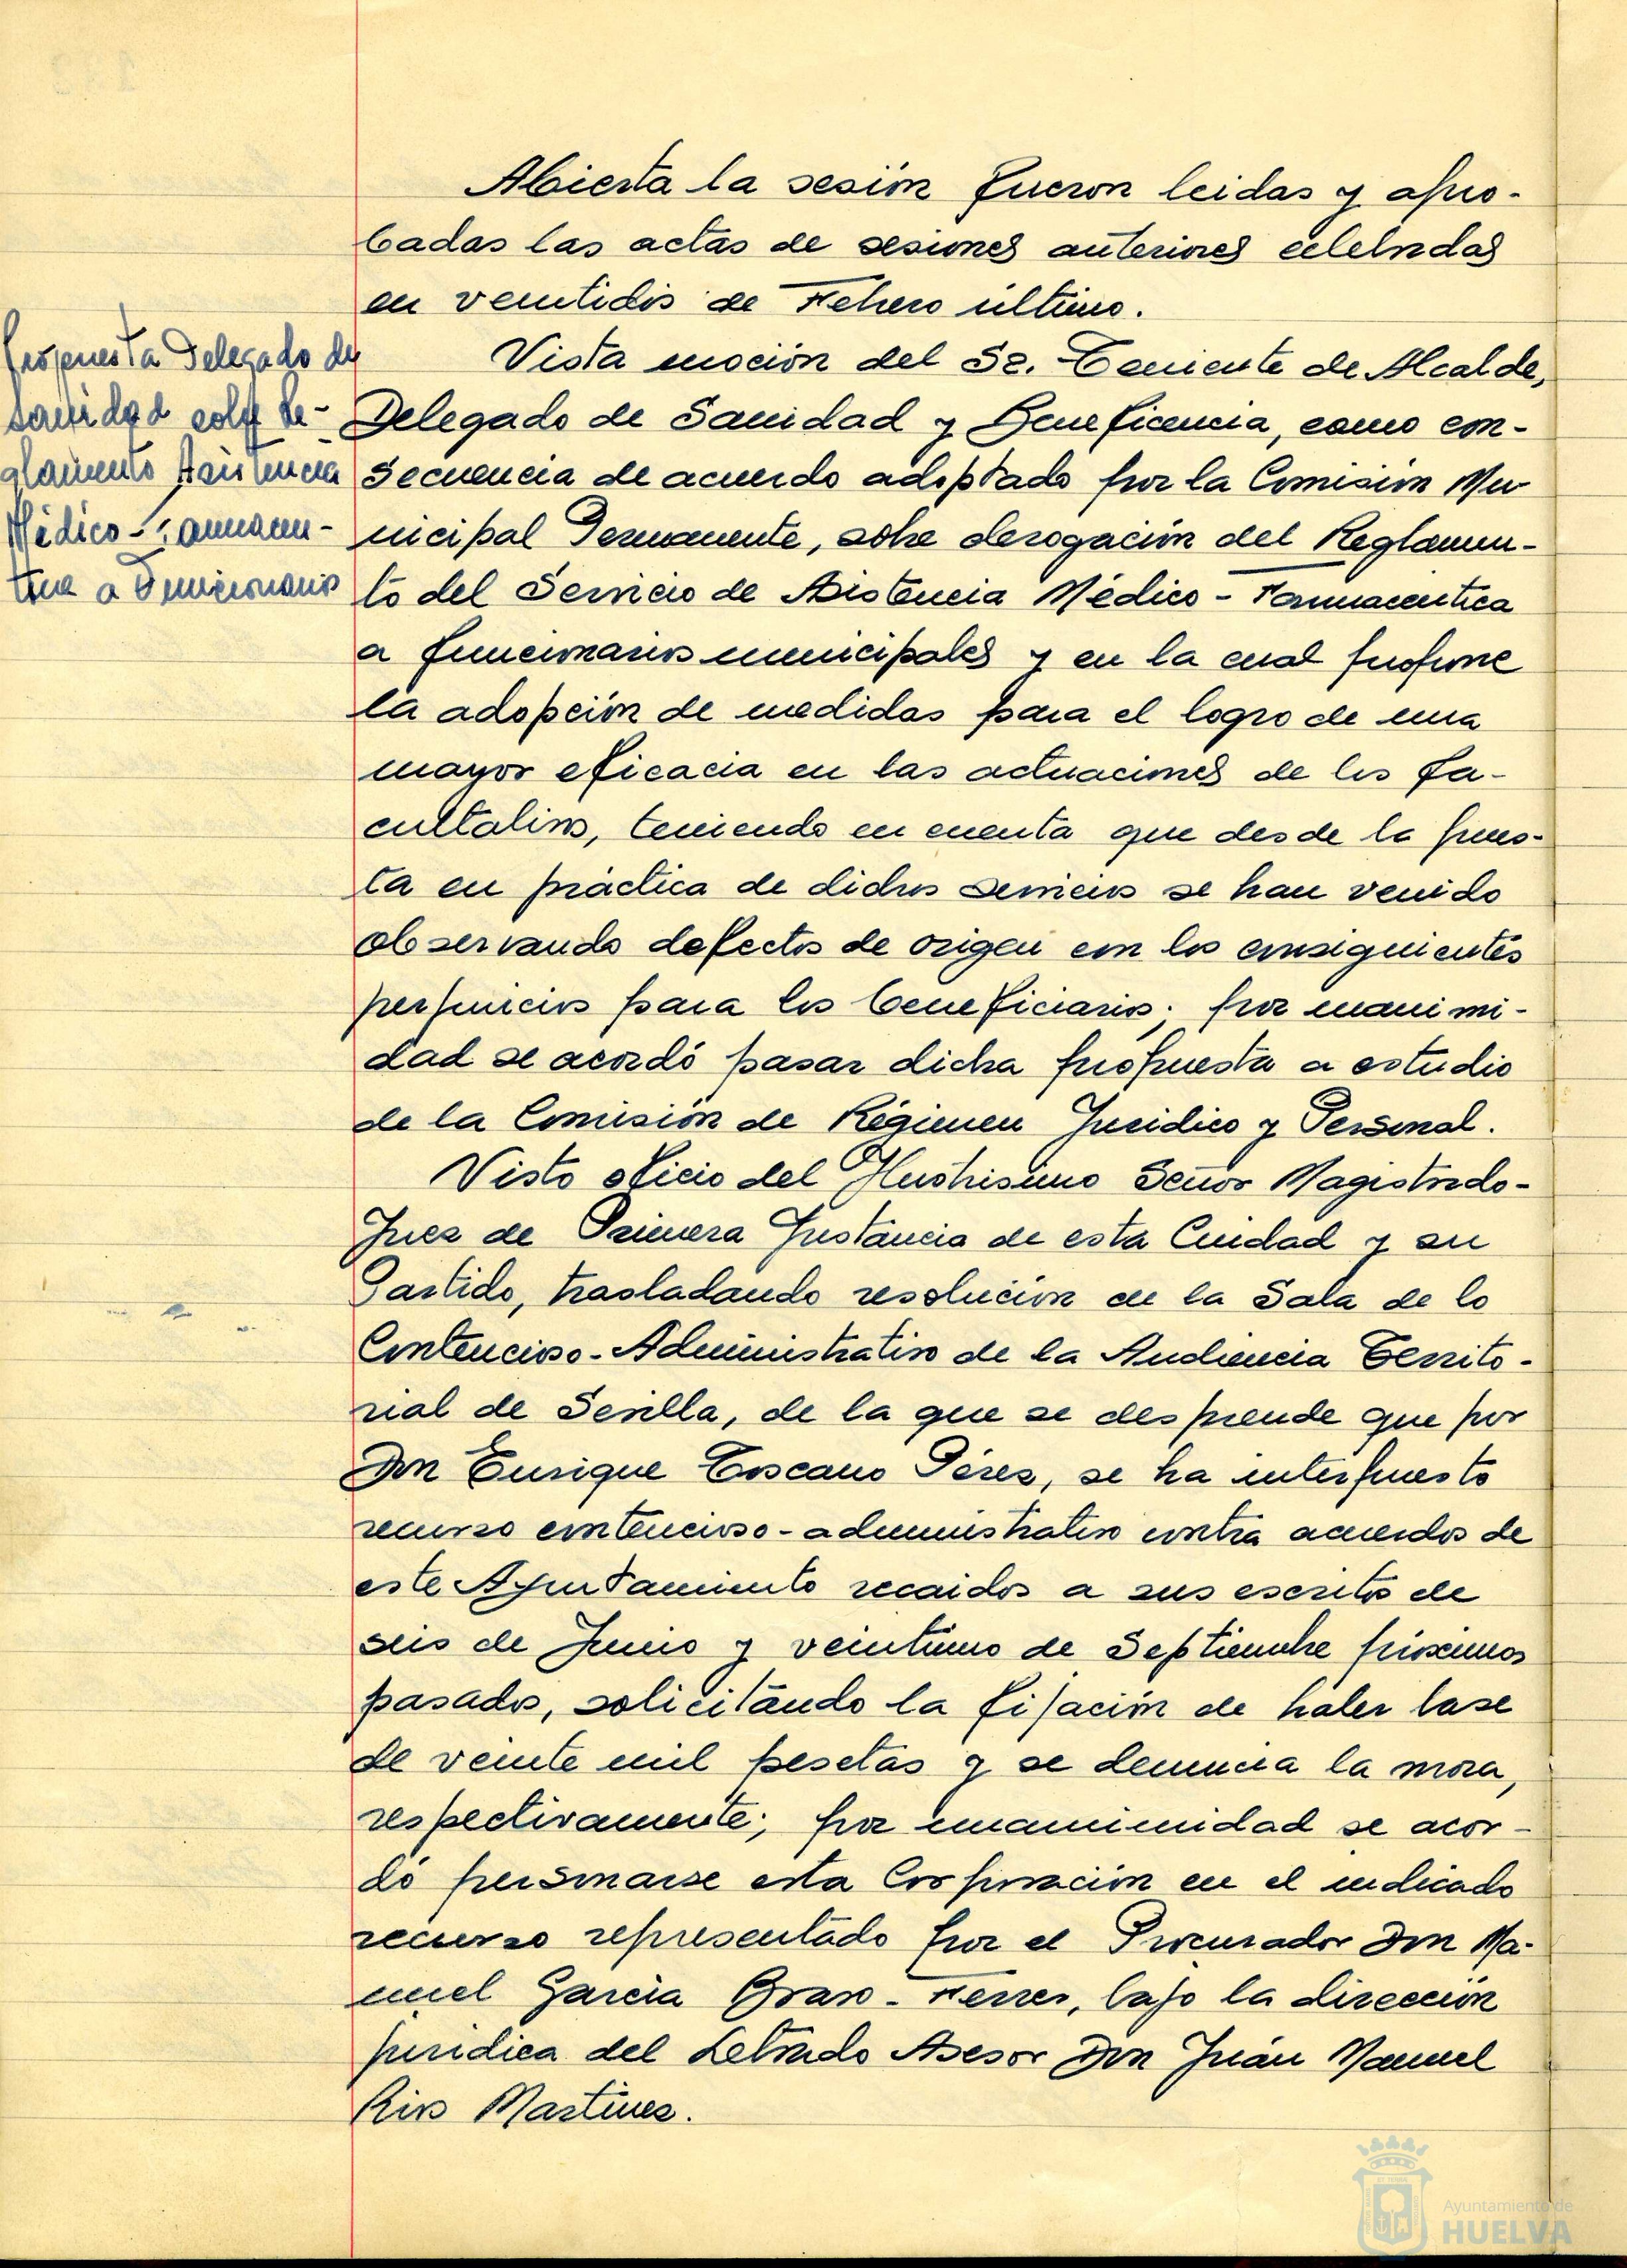 Abierta la sesión fueron leidas y apro-
badas las actas de sesiones anteriores celebradas
en veintidós de Febrero último.
Propuesta Delegado de
Sanidad sobre Re-
glamento Asistencia
Médico-Farmaceu-
tica a Funcionarios
Vista moción del Sr. Teniente de Alcalde,
Delegado de Sanidad y Beneficencia, como con-
secuencia de acuerdo adoptado por la Comisión Mu
nicipal Permanente, sobre derogación del Reglamen-
to del Servicio de Asistencia Médico-Farmaceutica
a funcionarios municipales y en la cual propone
la adopción de medidas para el logro de una
mayor eficacia en las actuaciones de los fa-
cultativos, teniendo en cuenta que desde la pues-
ta en práctica de dichos servicios se han venido
observando defectos de origen con los consiguientes
perjuicios para los beneficiarios; por unanimi-
dad se acordó pasar dicha propuesta a estudio
de la Comisión de Régimen Juridico y Personal.
Visto oficio del Ilustrisimo Señor Magistrado-
Juez de Primera Instancia de esta Ciudad y su
Partido, trasladando resolución de la Sala de lo
Contencioso-Administrativo de la Audiencia Territo-
rial de Sevilla, de la que se desprende que por
Don Enrique Toscano Pérez, se ha interpuesto
recurso contencioso-administrativo contra acuerdos de
este Ayuntamiento recaidos a sus escritos de
seis de Junio y veintiuno de Septiembre próximos
pasados, solicitando la fijación de haber base
de veinte mil pesetas y se denuncia la mora,
respectivamente; por unanimidad se acor-
dó personarse esta Corporación en el indicado
recurso representado por el Procurador Don Ma-
nuel Garcia Bravo-Ferrer, bajo la dirección
juridica del Letrado Asesor Don Juan Manuel
Rios Martinez.
Ayuntamiento de
HUELVA